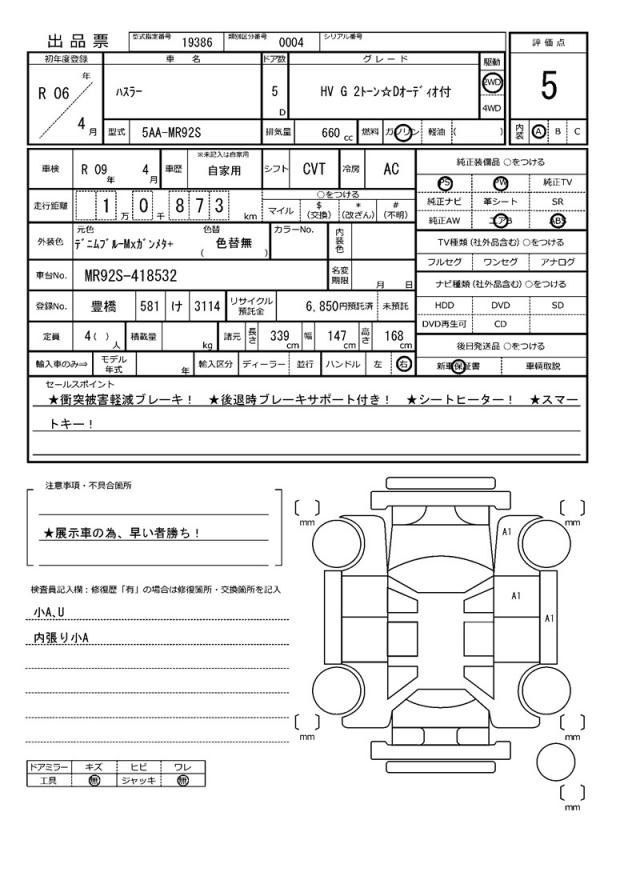 出品票 型式指定番号 19386 類別区分番号 0004 シリアル番号
初年度登録 車名 ドア数 グレード 駆動 評価点
R 06 年 4 月 ハスラー 5 D HV G 2トーン☆Dオーディオ付 2WD 4WD 5
型式 5AA-MR92S 排気量 660 cc 燃料 ガソリン 軽油 ( ) 内装 A B C
車検 R 09 年 4 月 車歴 ※未記入は自家用 自家用 シフト CVT 冷房 AC
走行距離 1 万 0 千 8 7 3 km ○をつける マイル $ (交換) * (改ざん) # (不明)
外装色 元色 デニムブルーMxガンメタ+ 色替 ( 色替無 ) カラーNo. 内装色
車台No. MR92S-418532 名変期限 月 日
登録No. 豊橋 581 け 3114 リサイクル預託金 6,850円預託済 未預託
定員 4( ) 人 積載量 kg 諸元 長さ 339 cm 幅 147 cm 高さ 168 cm
輸入車のみ⇒ モデル年式 年 輸入区分 ディーラー 並行 ハンドル 左 右
純正装備品 ○をつける
PS PW 純正TV
純正ナビ 革シート SR
純正AW エアB ABS
TV種類 (社外品含む) ○をつける
フルセグ ワンセグ アナログ
ナビ種類 (社外品含む) ○をつける
HDD DVD SD
DVD再生可 CD
後日発送品 ○をつける
新車保証書 車輌取説
セールスポイント
★衝突被害軽減ブレーキ！ ★後退時ブレーキサポート付き！ ★シートヒーター！ ★スマー
トキー！
注意事項・不具合箇所
★展示車の為、早い者勝ち！
検査員記入欄：修復歴「有」の場合は修復箇所・交換箇所を記入
小A、U
内張り小A
ドアミラー キズ ヒビ ワレ
工具 無 ジャッキ 無
mm mm
A1
A1
A1
mm mm
mm